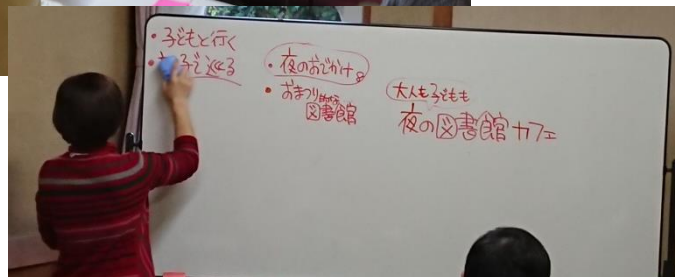 ・子どもと行く
・子で巡る
・夜のおでかけ
・おまつり
図書館
大人も子どもも
夜の図書館カフェ